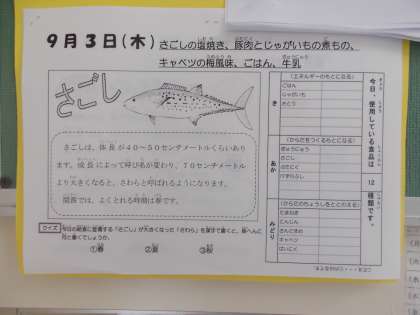 9月3日(木) さごしの塩焼き、豚肉とじゃがいもの煮もの、
キャベツの梅風味、ごはん、牛乳
さごし
さごしは、体長が40～50センチメートルくらいあり
ます。成長によって呼び名が変わり、70センチメートル
より大きくなると、さわらと呼ばれるようになります。
関西では、よくとれる時期は春です。
クイズ 今日の給食に登場する「さごし」が大きくなった「さわら」を漢字で書くと、魚へんに
何と書くでしょうか。
①春 ②夏 ③秋
今日、使用している食品は 12 種類です。
き
(エネルギーのもとになる)
ごはん
じゃがいも
さとう
あか
(からだをつくるもとになる)
ぎゅうにゅう
さごし
ぶたにく
けずりぶし
みどり
(からだのちょうしをととのえる)
たまねぎ
にんじん
さんどまめ
キャベツ
ばいにく